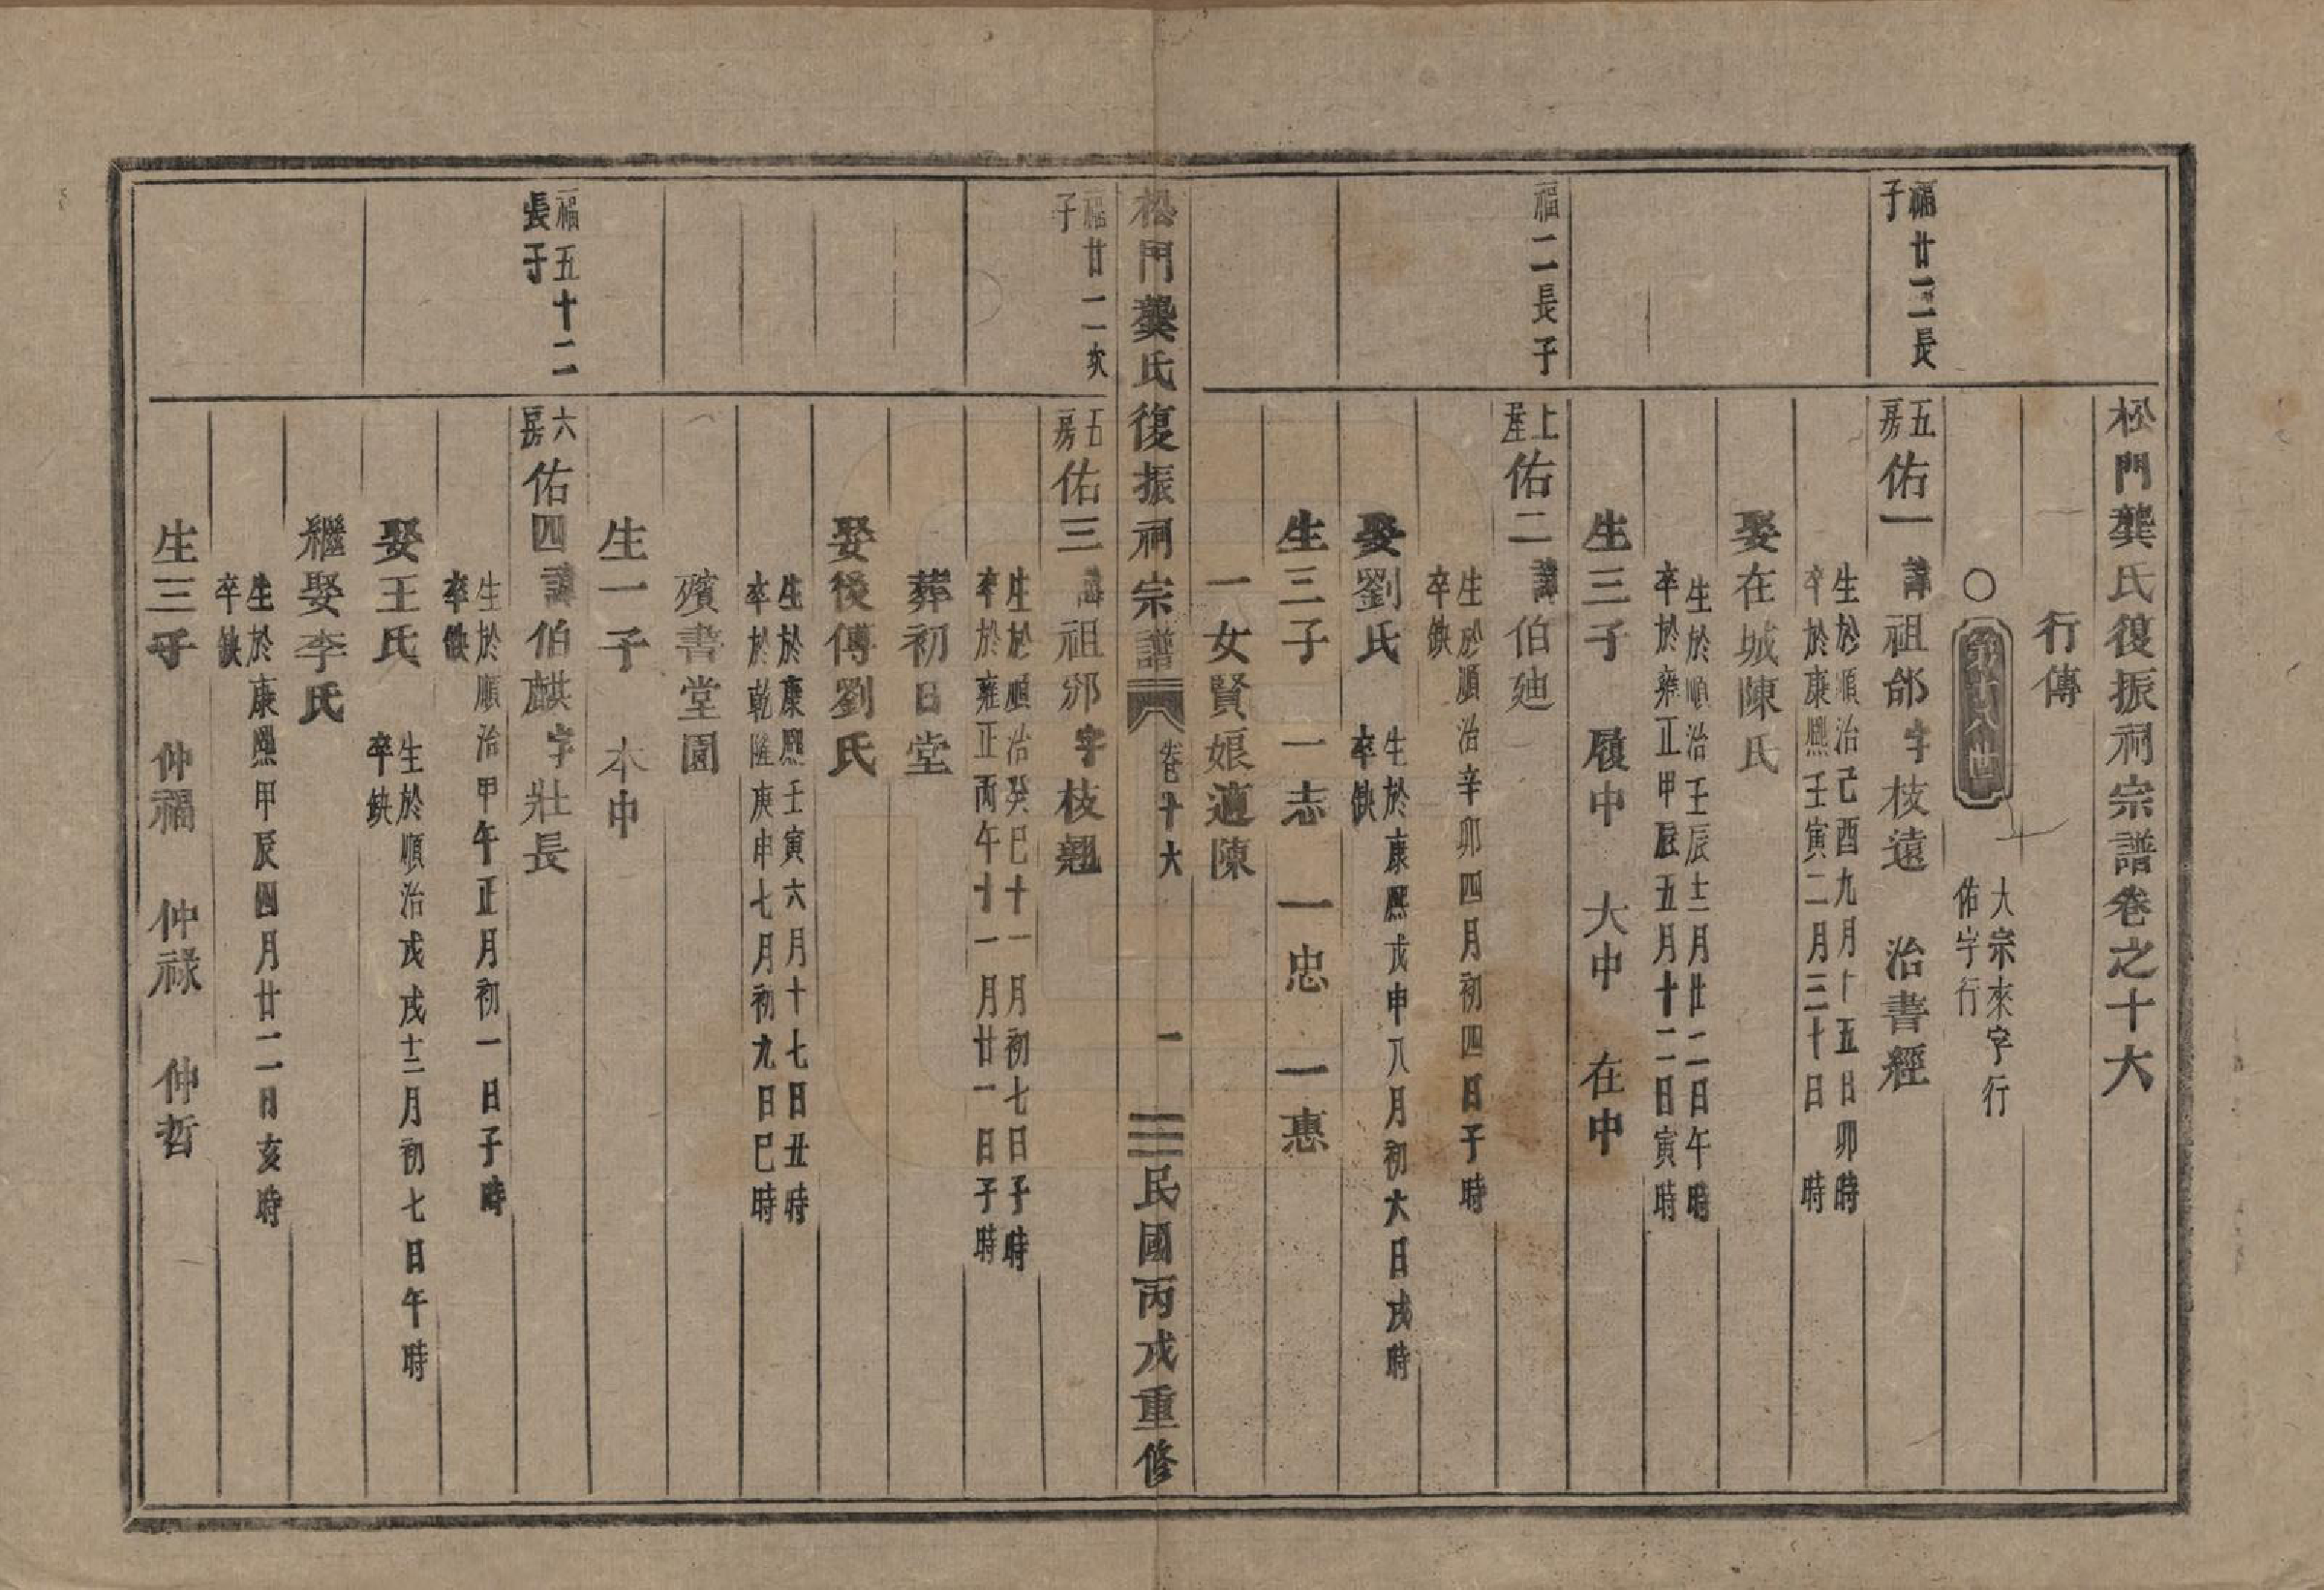 松門龔氏復振祠宗譜卷之十六
行傳
○
大宗來字行
佑字行
福廿二長
子
五
房
佑一諱祖郃字枝遠 治書經
生於順治己酉九月十五日卯時
卒於康熙壬寅二月三十日 時
娶在城陳氏
生於順治壬辰十二月廿二日午時
卒於雍正甲辰五月十二日寅時
生三子 履中 大中 在中
福二長子
上
屋
佑二諱伯廸
生於順治辛卯四月初四日子時
卒缺
娶劉氏
生於康熙戊申八月初六日戌時
卒缺
生三子 一志 一忠 一惠
一女賢娘適陳
松門龔氏復振祠宗譜 卷十六 一 民國丙戌重修
福廿二次
子
五
房
佑三諱祖邠字枝翹
生於順治癸巳十一月初七日子時
卒於雍正丙午十一月廿一日子時
葬初日堂
娶後傅劉氏
生於康熙壬寅六月十七日丑時
卒於乾隆庚申七月初九日巳時
殯書堂園
生一子 本中
福五十二
長子
六
房
佑四諱伯麒字壯長
生於順治甲午正月初一日子時
卒缺
娶王氏
生於順治戊戌十二月初七日午時
卒缺
繼娶李氏
生於康熙甲辰四月廿二日亥時
卒缺
生三子 仲福 仲祿 仲哲